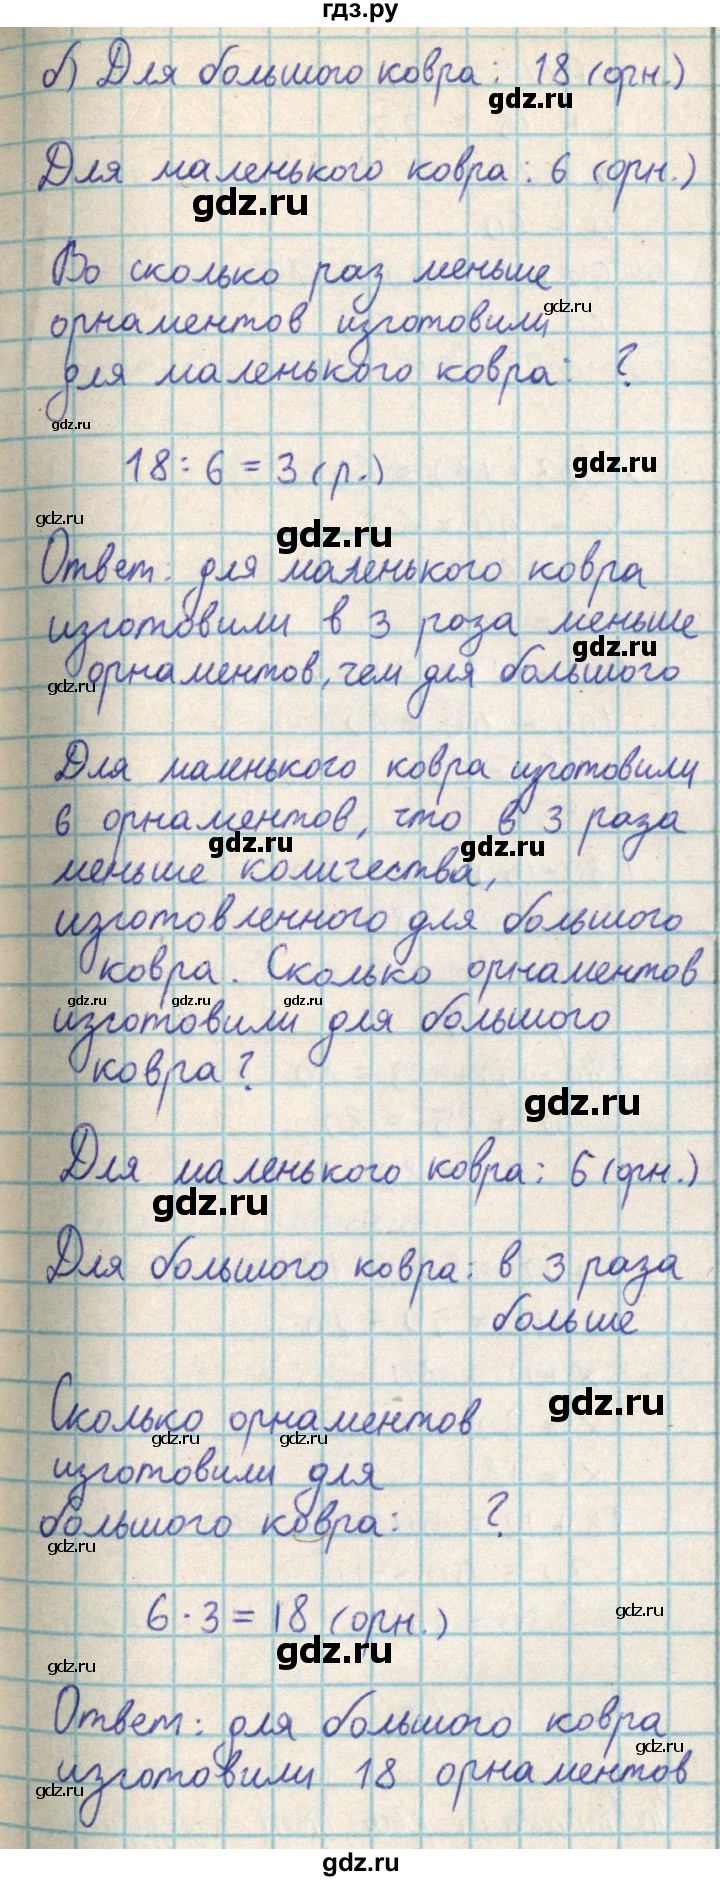 гдз.ру
б) Для большого ковра: 18 (орн.)
gdz.ru
Для маленького ковра: 6 (орн.)
gdz.ru
Во сколько раз меньше
gdz.ru
орнаментов изготовили
для маленького ковра: ?
gdz.ru
18:6=3 (р.)
gdz.ru
gdz.ru
gdz.ru
Ответ: для маленького ковра
изготовили в 3 раза меньше
gdz.ru
орнаментов, чем для большого
gdz.ru
Для маленького ковра изготовили
6 орнаментов, что в 3 раза
gdz.ru
gdz.ru
меньше количества,
изготовленного для большого
ковра. Сколько орнаментов
gdz.ru gdz.ru gdz.ru
изготовили для большого
ковра?
gdz.ru
Для маленького ковра: 6 (орн.)
gdz.ru
Для большого ковра: в 3 раза
больше
gdz.ru
Сколько орнаментов
gdz.ru gdz.ru
изготовили для
большого ковра: ?
gdz.ru
6·3=18 (орн.)
gdz.ru
gdz.ru
gdz.ru
Ответ: для большого ковра
gdz.ru
изготовили 18 орнаментов
gdz.ru
gdz.ru